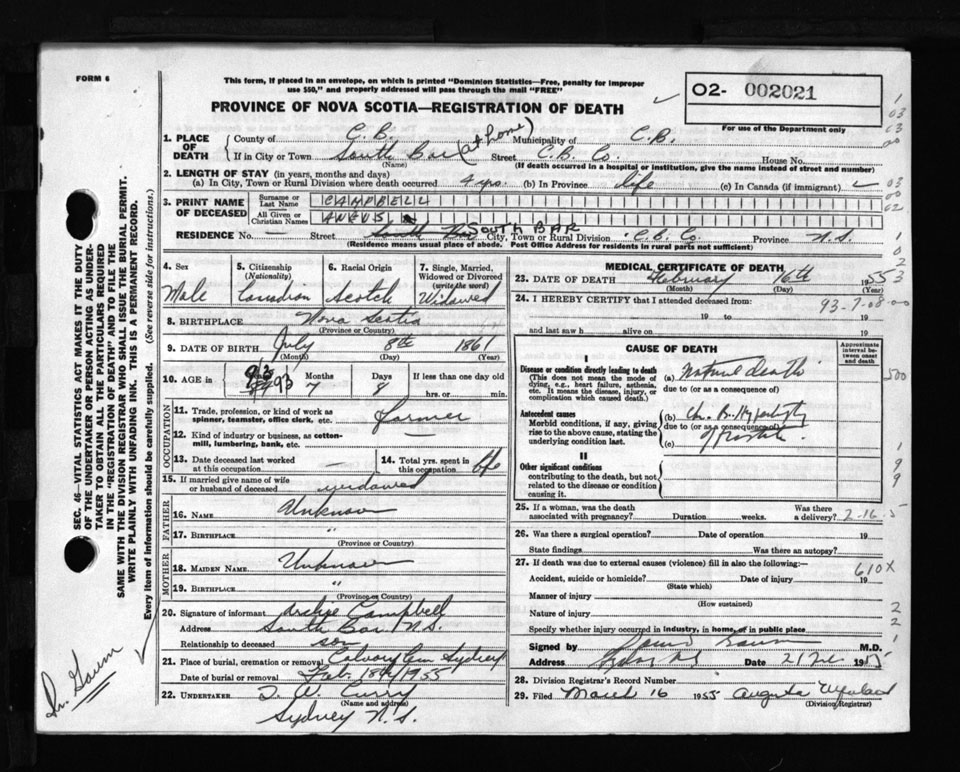 FORM 6
This form, if placed in an envelope, on which is printed "Dominion Statistics—Free, penalty for improper
use $50," and properly addressed will pass through the mail "FREE"
PROVINCE OF NOVA SCOTIA—REGISTRATION OF DEATH
O2- 002021
For use of the Department only
1. PLACE OF DEATH
County of C.B. Municipality of C.B.
If in City or Town South Bar (at home) Street C.B. Co. House No.
(Name) (If death occurred in a hospital or institution, give the name instead of street and number)
2. LENGTH OF STAY (in years, months and days)
(a) In City, Town or Rural Division where death occurred 4 yrs. (b) In Province life (c) In Canada (if immigrant)
3. PRINT NAME OF DECEASED
Surname or Last Name CAMPBELL
All Given or Christian Names ANGUS
RESIDENCE No. — Street SOUTH BAR City, Town or Rural Division C.B. Co. Province N.S.
(Residence means usual place of abode. Post Office Address for residents in rural parts not sufficient)
4. Sex Male
5. Citizenship (Nationality) Canadian
6. Racial Origin Scotch
7. Single, Married, Widowed or Divorced (write the word) Widowed
8. BIRTHPLACE Nova Scotia
(Province or Country)
9. DATE OF BIRTH July 8th 1861
(Month) (Day) (Year)
10. AGE in 93 Months 7 Days 8 If less than one day
hrs. or min.
OCCUPATION
11. Trade, profession, or kind of work as spinner, teamster, office clerk, etc. farmer
12. Kind of industry or business, as cotton-mill, lumbering, bank, etc. —
13. Date deceased last worked at this occupation —
14. Total yrs. spent in this occupation life
15. If married give name of wife or husband of deceased widowed
FATHER
16. NAME Unknown
17. BIRTHPLACE "
(Province or Country)
MOTHER
18. MAIDEN NAME Unknown
19. BIRTHPLACE "
(Province or Country)
20. Signature of informant Archie Campbell
Address South Bar N.S.
Relationship to deceased son
21. Place of burial, cremation or removal Calvary Cem Sydney
Date of burial or removal Feb. 18th/1955
22. UNDERTAKER T. W. Curry
(Name and address)
Sydney N.S.
MEDICAL CERTIFICATE OF DEATH
23. DATE OF DEATH February 16th 1955
(Month) (Day) (Year)
24. I HEREBY CERTIFY that I attended deceased from:
93-7-08-00
19 to 19
and last saw h alive on 19
CAUSE OF DEATH
Approximate interval between onset and death
I
Disease or condition directly leading to death
(This does not mean the mode of dying, e.g., heart failure, asthenia, etc. It means the disease, injury, or complication which caused death.)
(a) Natural death
due to (or as a consequence of)
Antecedent causes
Morbid conditions, if any, giving rise to the above cause, stating the underlying condition last.
(b)
due to (or as a consequence of)
(c) of prostate.
II
Other significant conditions
contributing to the death, but not related to the disease or condition causing it.
25. If a woman, was the death associated with pregnancy? Duration weeks. Was there a delivery? 2-16-5
26. Was there a surgical operation? Date of operation 19
State findings Was there an autopsy?
27. If death was due to external causes (violence) fill in also the following:—
610X
Accident, suicide or homicide? Date of injury 19
(State which)
Manner of injury
(How sustained)
Nature of injury
Specify whether injury occurred in industry, in home, or in public place
Signed by M.D.
Address Date 21 195
28. Division Registrar's Record Number
29. Filed March 16 1955 Augusta
(Division Registrar)
SEC. 46—VITAL STATISTICS ACT MAKES IT THE DUTY
OF THE UNDERTAKER OR PERSON ACTING AS UNDER-
TAKER TO OBTAIN ALL THE PARTICULARS REQUIRED
IN THE "REGISTRATION OF DEATH" AND TO FILE THE
SAME WITH THE DIVISION REGISTRAR WHO SHALL ISSUE THE BURIAL PERMIT.
WRITE PLAINLY WITH UNFADING INK. THIS IS A PERMANENT RECORD.
Every item of information should be carefully supplied. (See reverse side for instructions.)